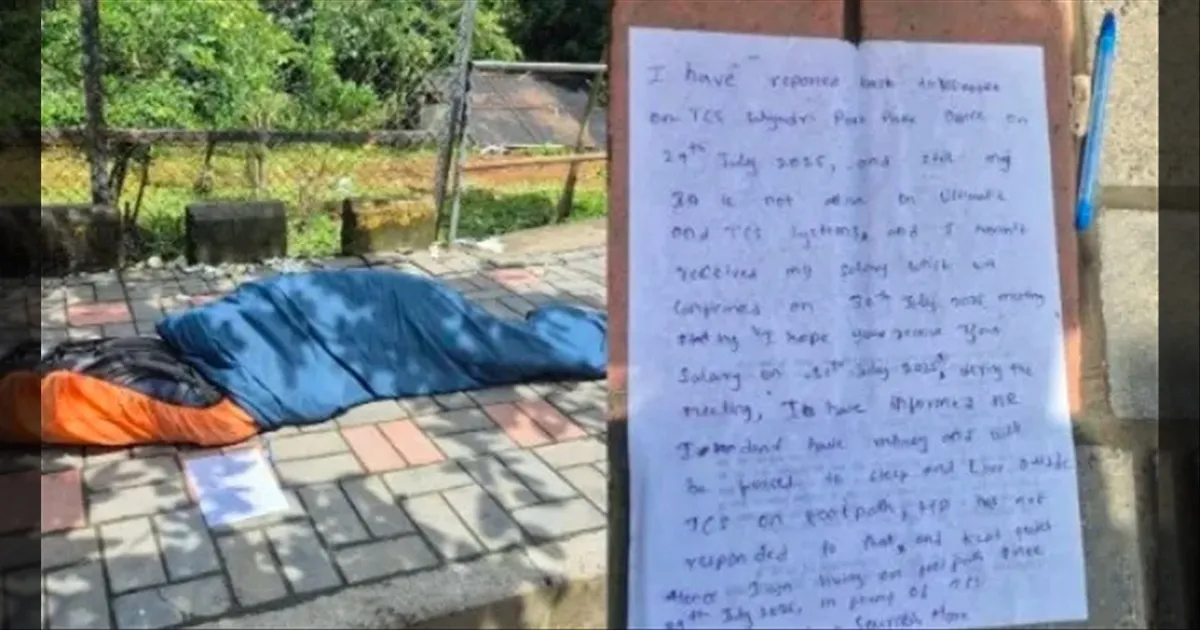 I have reported back to
on TCS Sahyadri Park Pune Office on
29th July 2025, and still my
ID is not active on Ultimatix
and TCS Systems, and I haven't
received my salary which was
confirmed on 30th July 2025 meeting
"I hope you receive your
Salary on 31st July 2025", during the
meeting, I have informed HR
I don't have money and will
be forced to sleep and live outside
TCS on footpath, HR has not
responded to that, and kept quiet
Hence I am living on footpath since
29th July 2025, in front of TCS